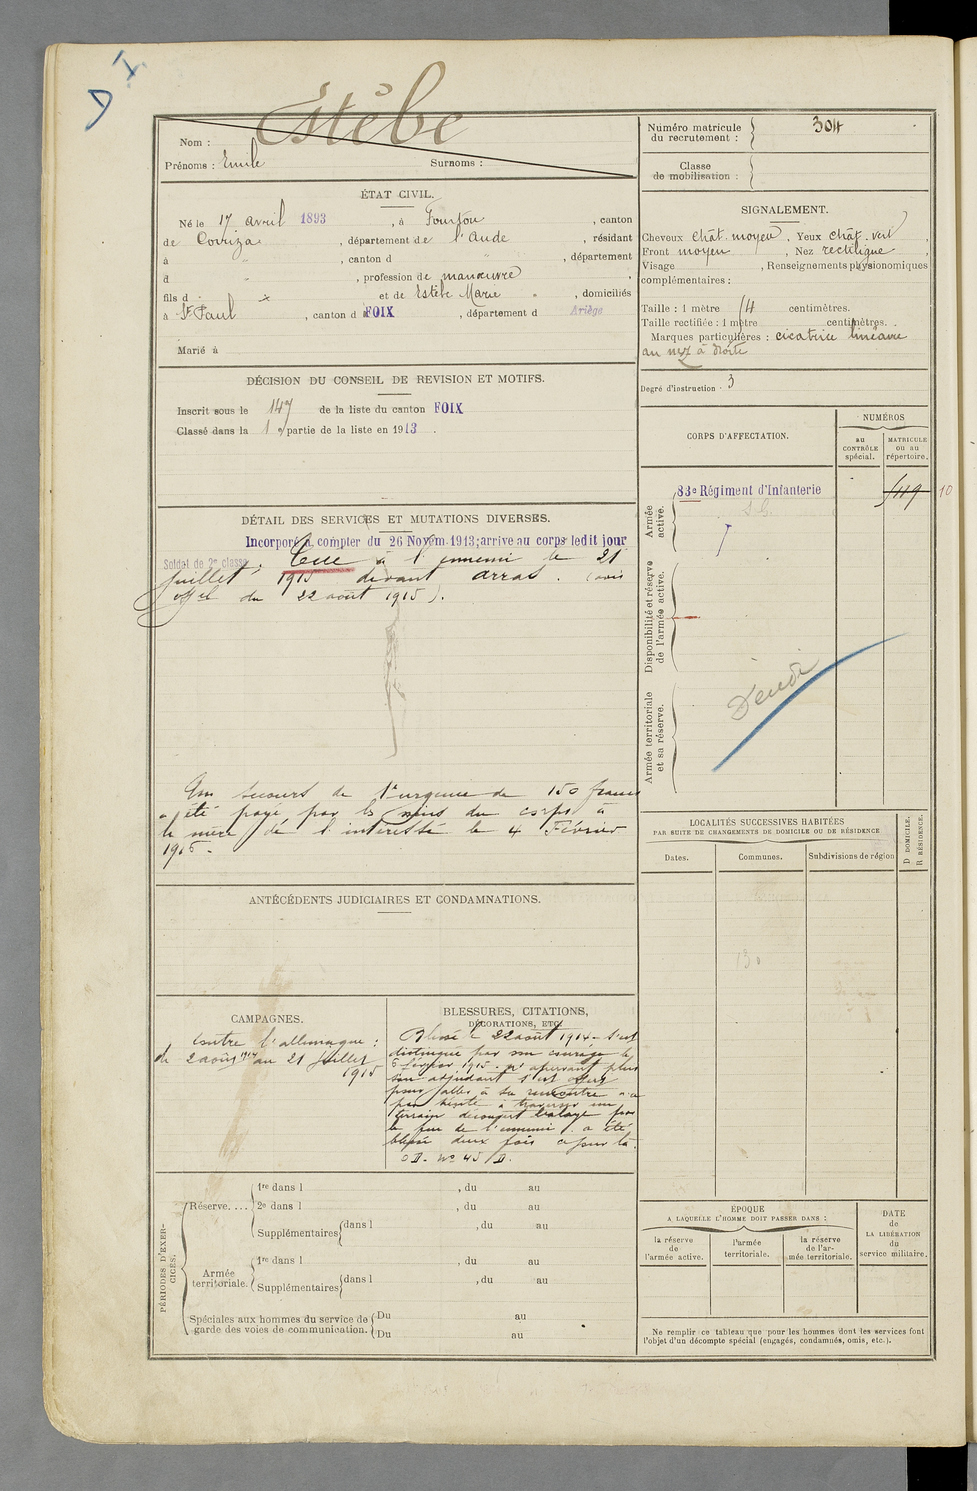 D I
Estèbe
Nom :
Prénoms : Emile Surnoms :
ÉTAT CIVIL.
Né le 17 avril 1893 , à Fourtou , canton
de Couiza , département de l'Aude , résidant
à " , canton d " , département
d " , profession de manœuvre ,
fils d et de Estèbe Marie , domiciliés
à St Paul , canton d FOIX , département d Ariège
Marié à
DÉCISION DU CONSEIL DE REVISION ET MOTIFS.
Inscrit sous le 147 de la liste du canton FOIX
Classé dans la 1e partie de la liste en 1913 .
DÉTAIL DES SERVICES ET MUTATIONS DIVERSES.
Incorporé à compter du 26 Novem. 1913; arrive au corps ledit jour
Soldat de 2e classe. Tué à l'ennemi le 21
juillet 1915 devant Arras. (avis
offel du 22 août 1915).
Un secours de 1e urgence de 150 francs
a été payé par les soins du corps à
la mère de l'intéressé le 4 Février
1916.
ANTÉCÉDENTS JUDICIAIRES ET CONDAMNATIONS.
CAMPAGNES.
Contre l'allemagne :
du 2 août 1914 au 21 juillet
1915
BLESSURES, CITATIONS,
DÉCORATIONS, ETC.
Blessé le 22 août 1914 - S'est
distingué par son courage le
6 février 1915. n'apercevant plus
son adjudant s'est offert
pour aller à sa rencontre n'a
pas hésité à traverser un
terrain découvert balayé par
le feu de l'ennemi. a été
blessé deux fois
O D. No 45 D.
PÉRIODES D'EXERCICES.
Réserve. . . . 1re dans l , du au
2e dans l , du au
Supplémentaires dans l , du au
Armée territoriale. 1re dans l , du au
Supplémentaires dans l , du au
Spéciales aux hommes du service de garde des voies de communication. Du au
Du au
Numéro matricule du recrutement : 304
Classe de mobilisation :
SIGNALEMENT.
Cheveux chât. moyen , Yeux chât. vert ,
Front moyen , Nez rectiligne ,
Visage , Renseignements physionomiques
complémentaires :
Taille : 1 mètre 14 centimètres.
Taille rectifiée : 1 mètre centimètres.
Marques particulières : cicatrice linéaire
au nez à droite
Degré d'instruction : 3
CORPS D'AFFECTATION.
NUMÉROS
au CONTRÔLE spécial.
MATRICULE ou au répertoire.
Armée active.
83e Régiment d'Infanterie
119
10
Disponibilité et réserve de l'armée active.
Armée territoriale et sa réserve.
LOCALITÉS SUCCESSIVES HABITÉES
PAR SUITE DE CHANGEMENTS DE DOMICILE OU DE RÉSIDENCE
Dates. Communes. Subdivisions de région
D DOMICILE.
R RÉSIDENCE.
ÉPOQUE
A LAQUELLE L'HOMME DOIT PASSER DANS :
la réserve de l'armée active.
l'armée territoriale.
la réserve de l'armée territoriale.
DATE de LA LIBÉRATION du service militaire.
Ne remplir ce tableau que pour les hommes dont les services font
l'objet d'un décompte spécial (engagés, condamnés, omis, etc.).